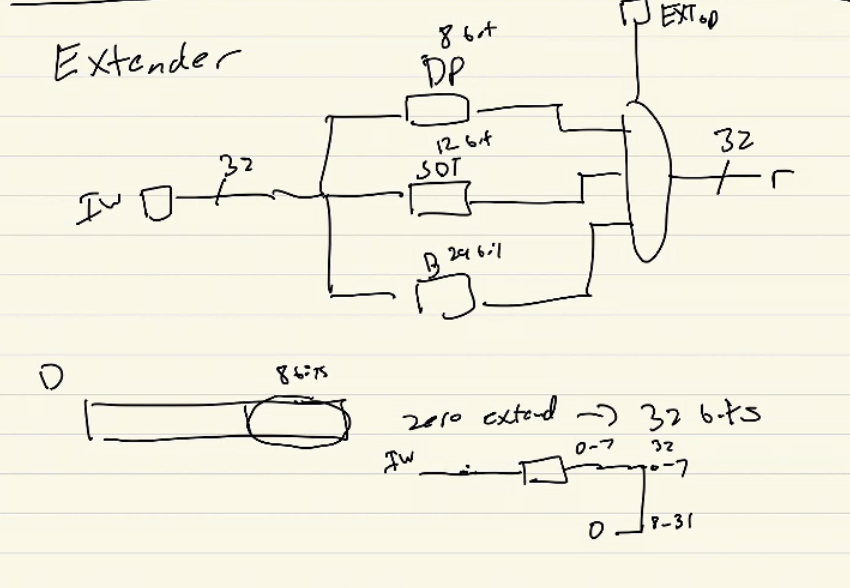 Extender
8 bit
DP
EXTop
12 bit
SDT
32
32
IW
r
B 24 bit
0
8 bits
zero extend → 32 bits
IW
0-7
32
0-7
0
8-31